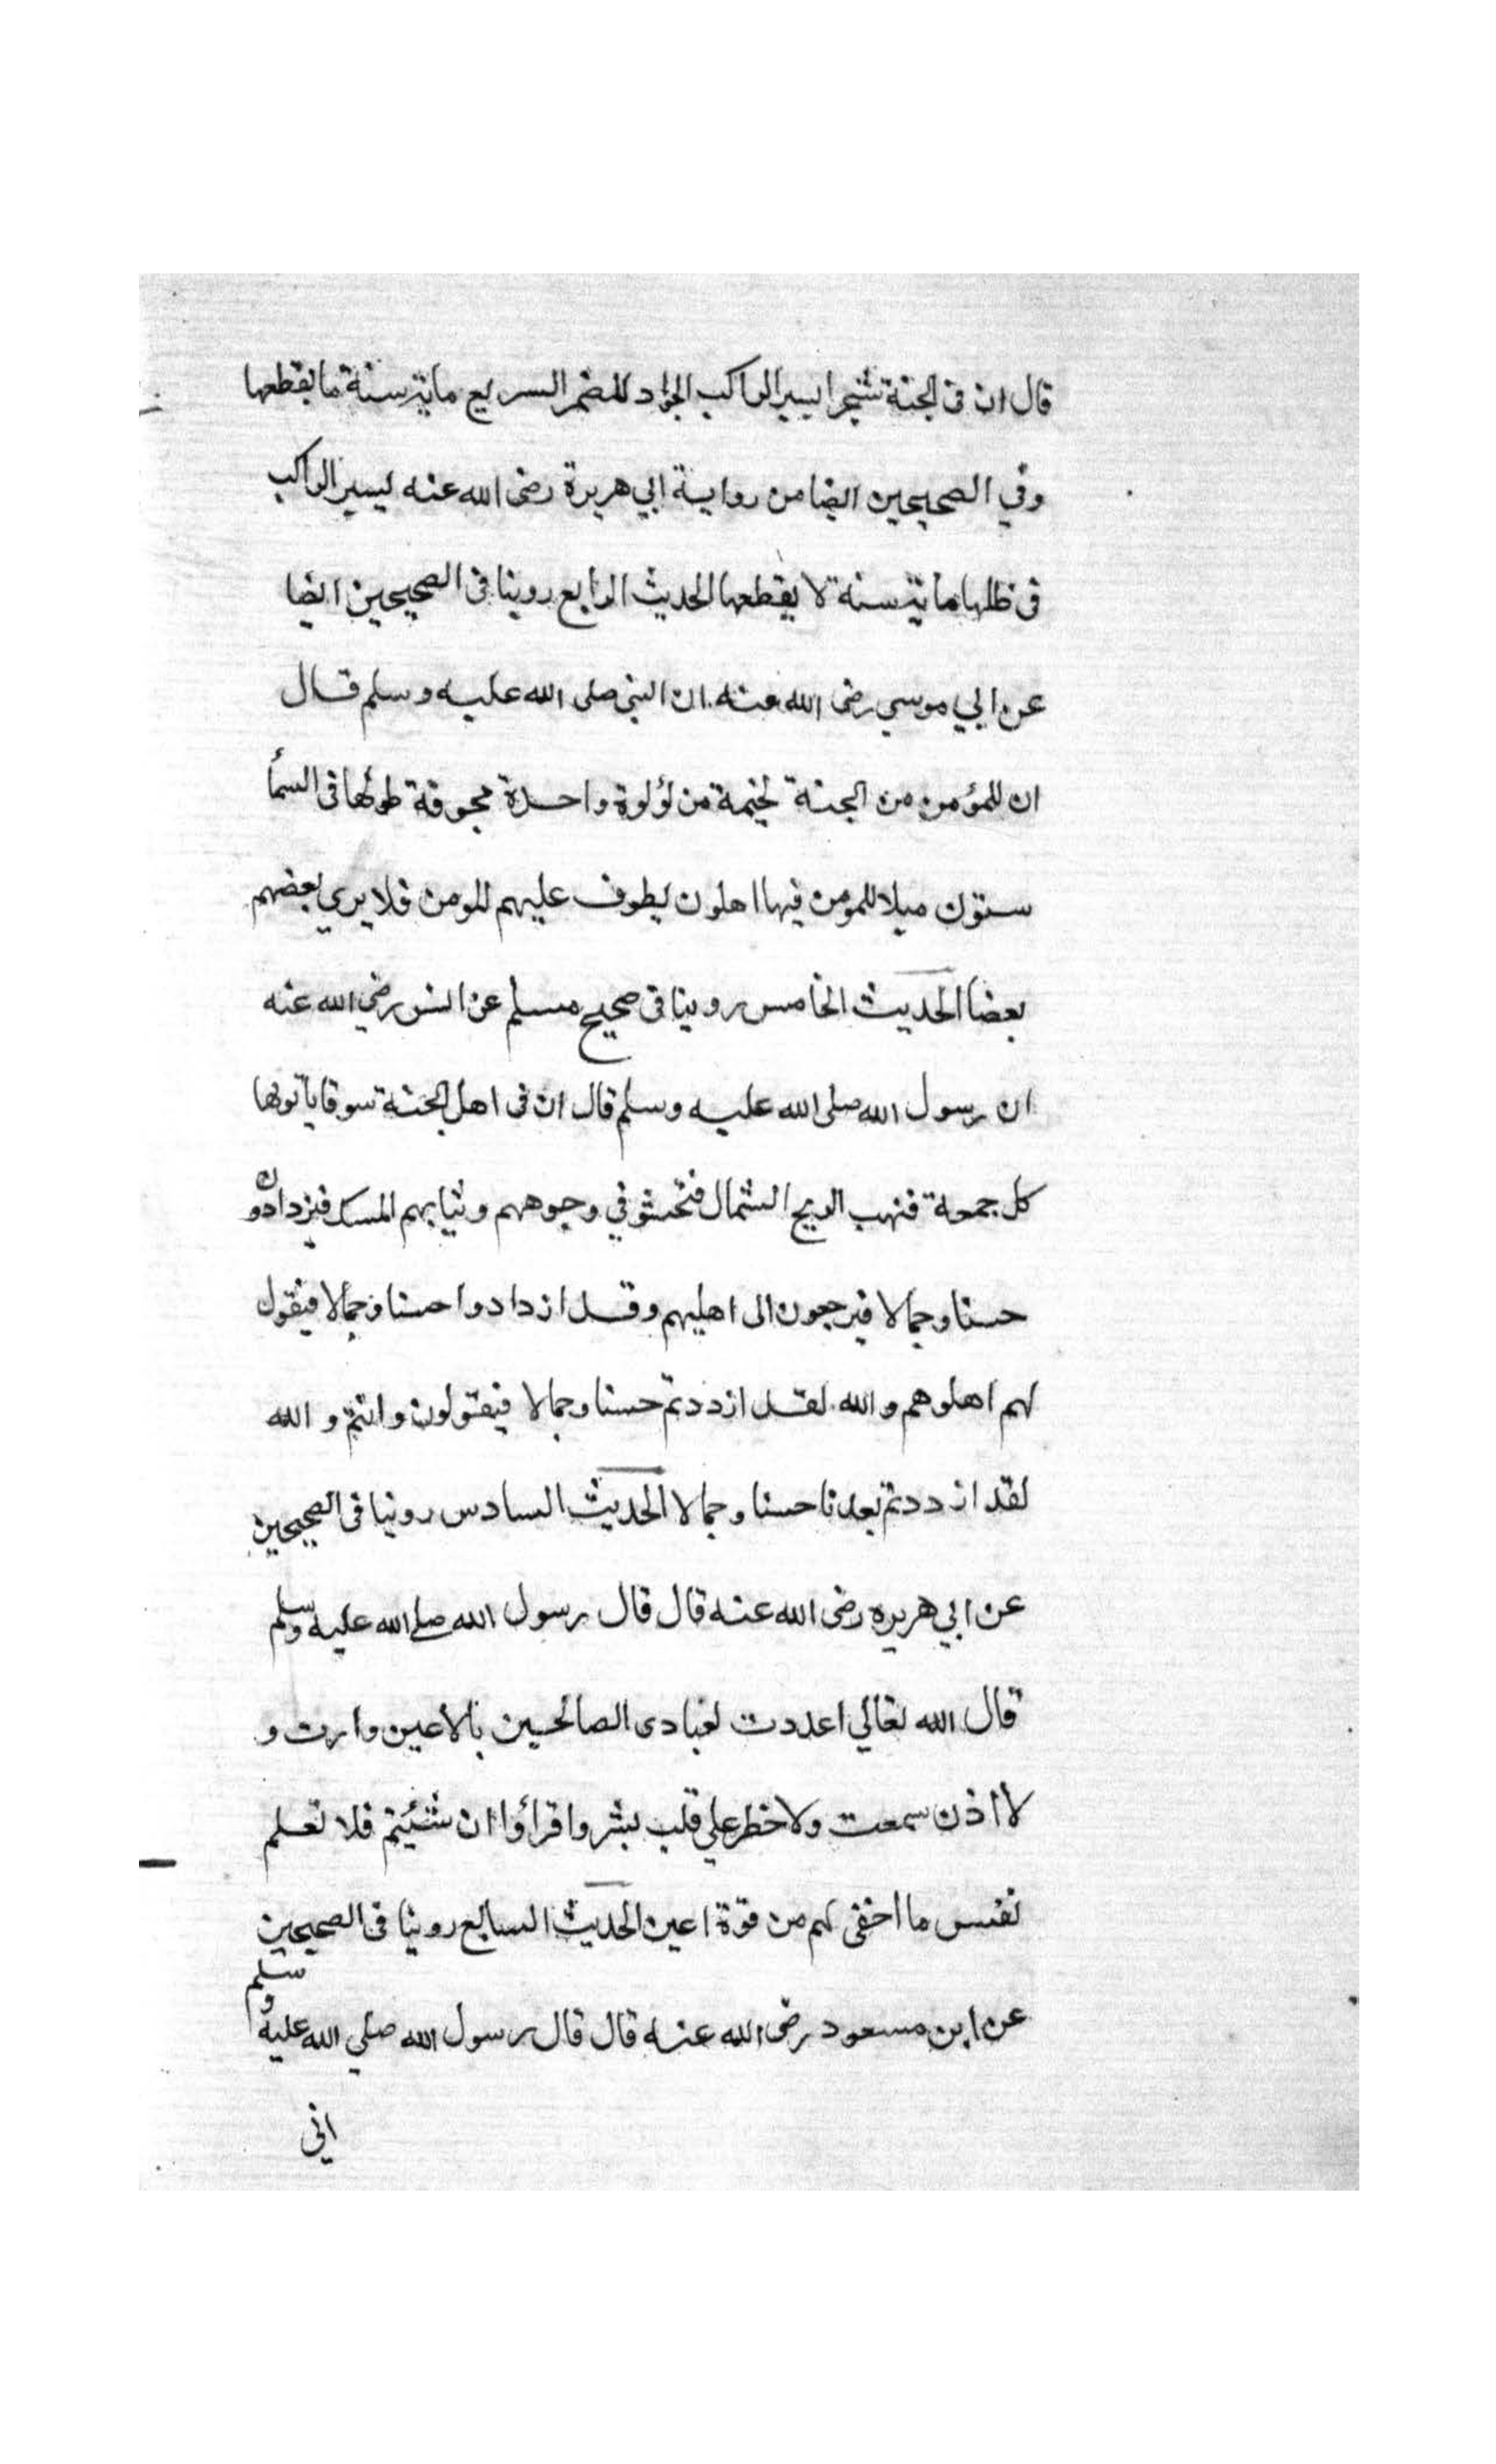 قال ان فى الجنة شجرا يسير الراكب الجواد المضمر السريع ماية سنة ما يقطعها
وفي الصحيحين ايضا من رواية ابي هريرة رضى الله عنه ليسير الراكب
فى ظلها ماية سنة لا يقطعها الحديث الرابع روينا فى الصحيحين ايضا
عن ابي موسي رضى الله عنه ان النبي صلى الله عليه وسلم قال
ان للمؤمن من الجنة لخيمة من لؤلوة واحدة مجوفة طولها فى السمأ
ستون ميلا للمومن فيها اهلون يطوف عليهم المومن فلا يري بعضهم
بعضا الحديث الخامس روينا فى صحيح مسلم عن انس رضي الله عنه
ان رسول الله صلى الله عليه وسلم قال ان فى اهل الجنة سوقا ياتونها
كل جمعة فتهب الريح الشمال فتحثو في وجوههم وثيابهم المسك فيزدادون
حسنا وجمالا فيرجعون الى اهليهم وقد ازدادوا حسنا وجمالا فيقول
لهم اهلوهم والله لقد ازددتم حسنا وجمالا فيقولون وانتم والله
لقد ازددتم بعدنا حسنا وجمالا الحديث السادس روينا فى الصحيحين
عن ابي هريره رضى الله عنه قال قال رسول الله صلى الله عليه وسلم
قال الله تعالي اعددت لعبادى الصالحين مالاعين وارت و
لا اذن سمعت ولا خطر علي قلب بشر واقرأوا ان شئيتم فلا تعلم
نفس ما اخفى لهم من قرة اعين الحديث السابع روينا فى الصحيحين
عن ابن مسعود رضى الله عنه قال قال رسول الله صلي الله عليه وسلم
اني